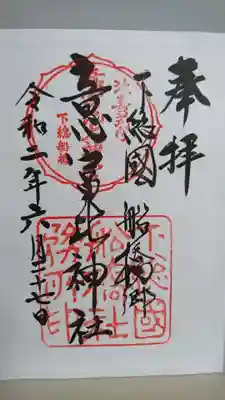 奉拝
下総國 船橋郷
意富比神社
令和二年六月二十七日
下総船橋